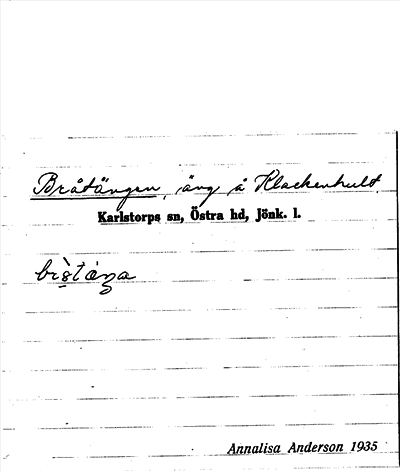 Bråtängen, äng å Klackenhult.
Karlstorps sn, Östra hd, Jönk. l.
Annalisa Anderson 1935